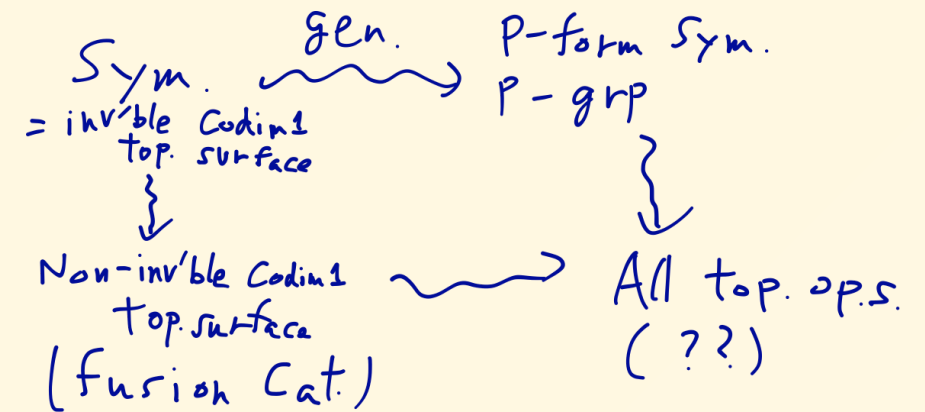 Sym.
= inv'ble Codim1
top. surface
gen.
P-form Sym.
P-grp
Non-inv'ble Codim1
top. surface
(fusion Cat.)
All top. op.s.
(??)